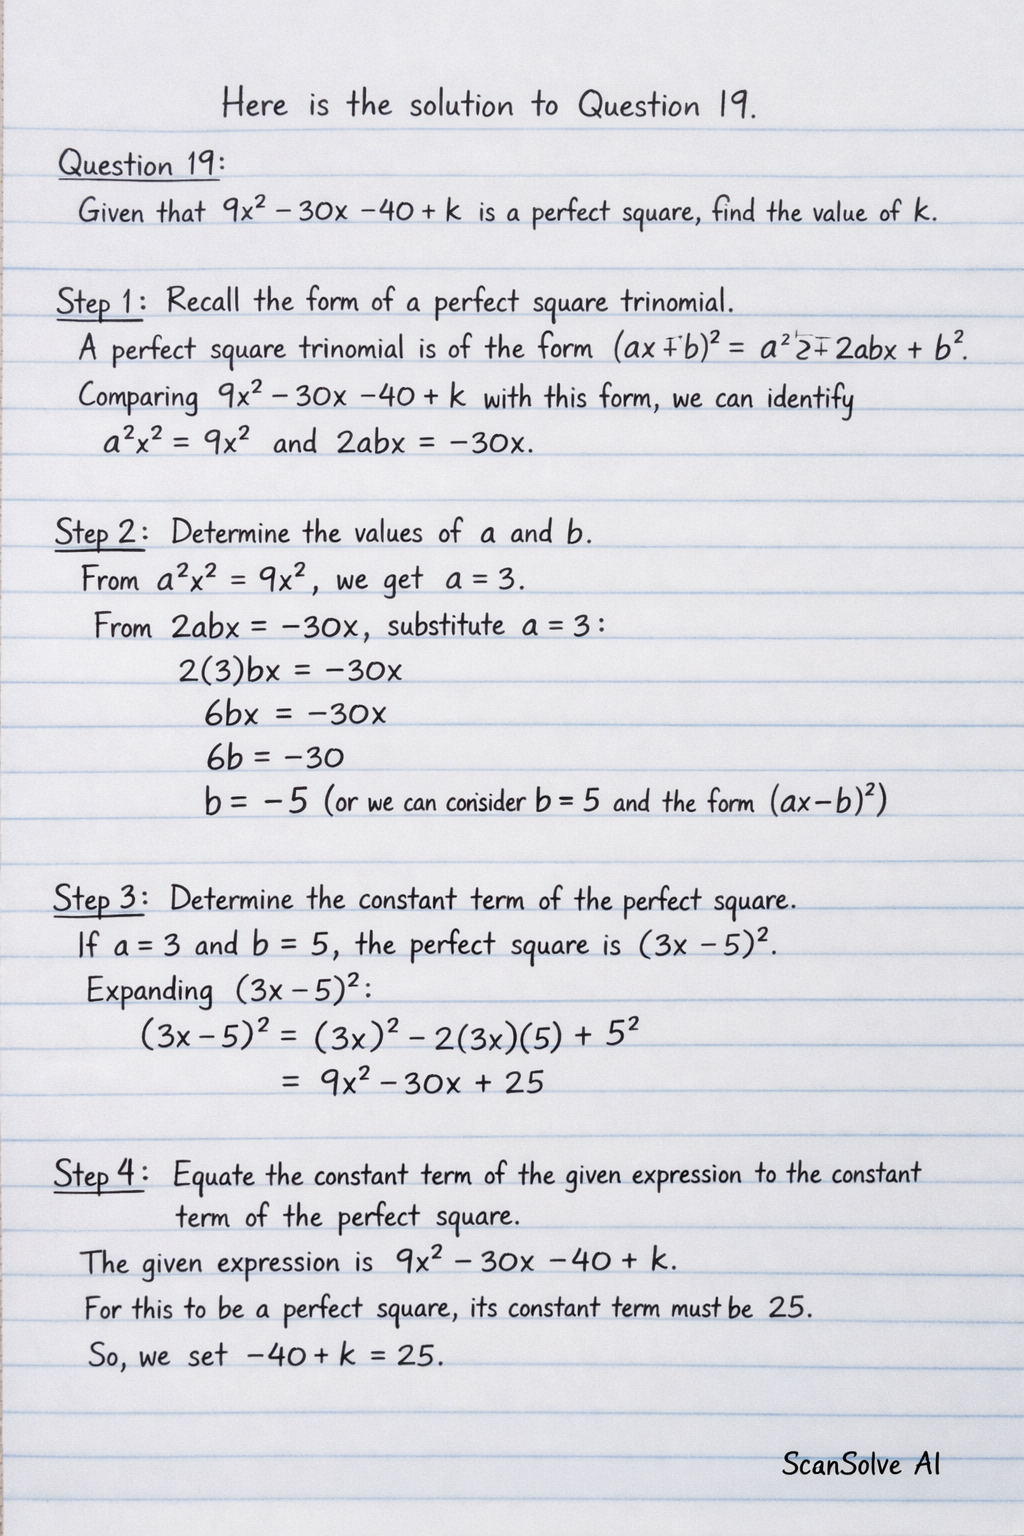 Here is the solution to Question 19.
Question 19:
Given that 9x² − 30x − 40 + k is a perfect square, find the value of k.
Step 1: Recall the form of a perfect square trinomial.
A perfect square trinomial is of the form (ax ∓ b)² = a² ∓ 2abx + b².
Comparing 9x² − 30x − 40 + k with this form, we can identify
a²x² = 9x² and 2abx = −30x.
Step 2: Determine the values of a and b.
From a²x² = 9x², we get a = 3.
From 2abx = −30x, substitute a = 3:
2(3)bx = −30x
6bx = −30x
6b = −30
b = −5 (or we can consider b = 5 and the form (ax − b)²)
Step 3: Determine the constant term of the perfect square.
If a = 3 and b = 5, the perfect square is (3x − 5)².
Expanding (3x − 5)²:
(3x − 5)² = (3x)² − 2(3x)(5) + 5²
= 9x² − 30x + 25
Step 4: Equate the constant term of the given expression to the constant
term of the perfect square.
The given expression is 9x² − 30x − 40 + k.
For this to be a perfect square, its constant term must be 25.
So, we set −40 + k = 25.
ScanSolve AI